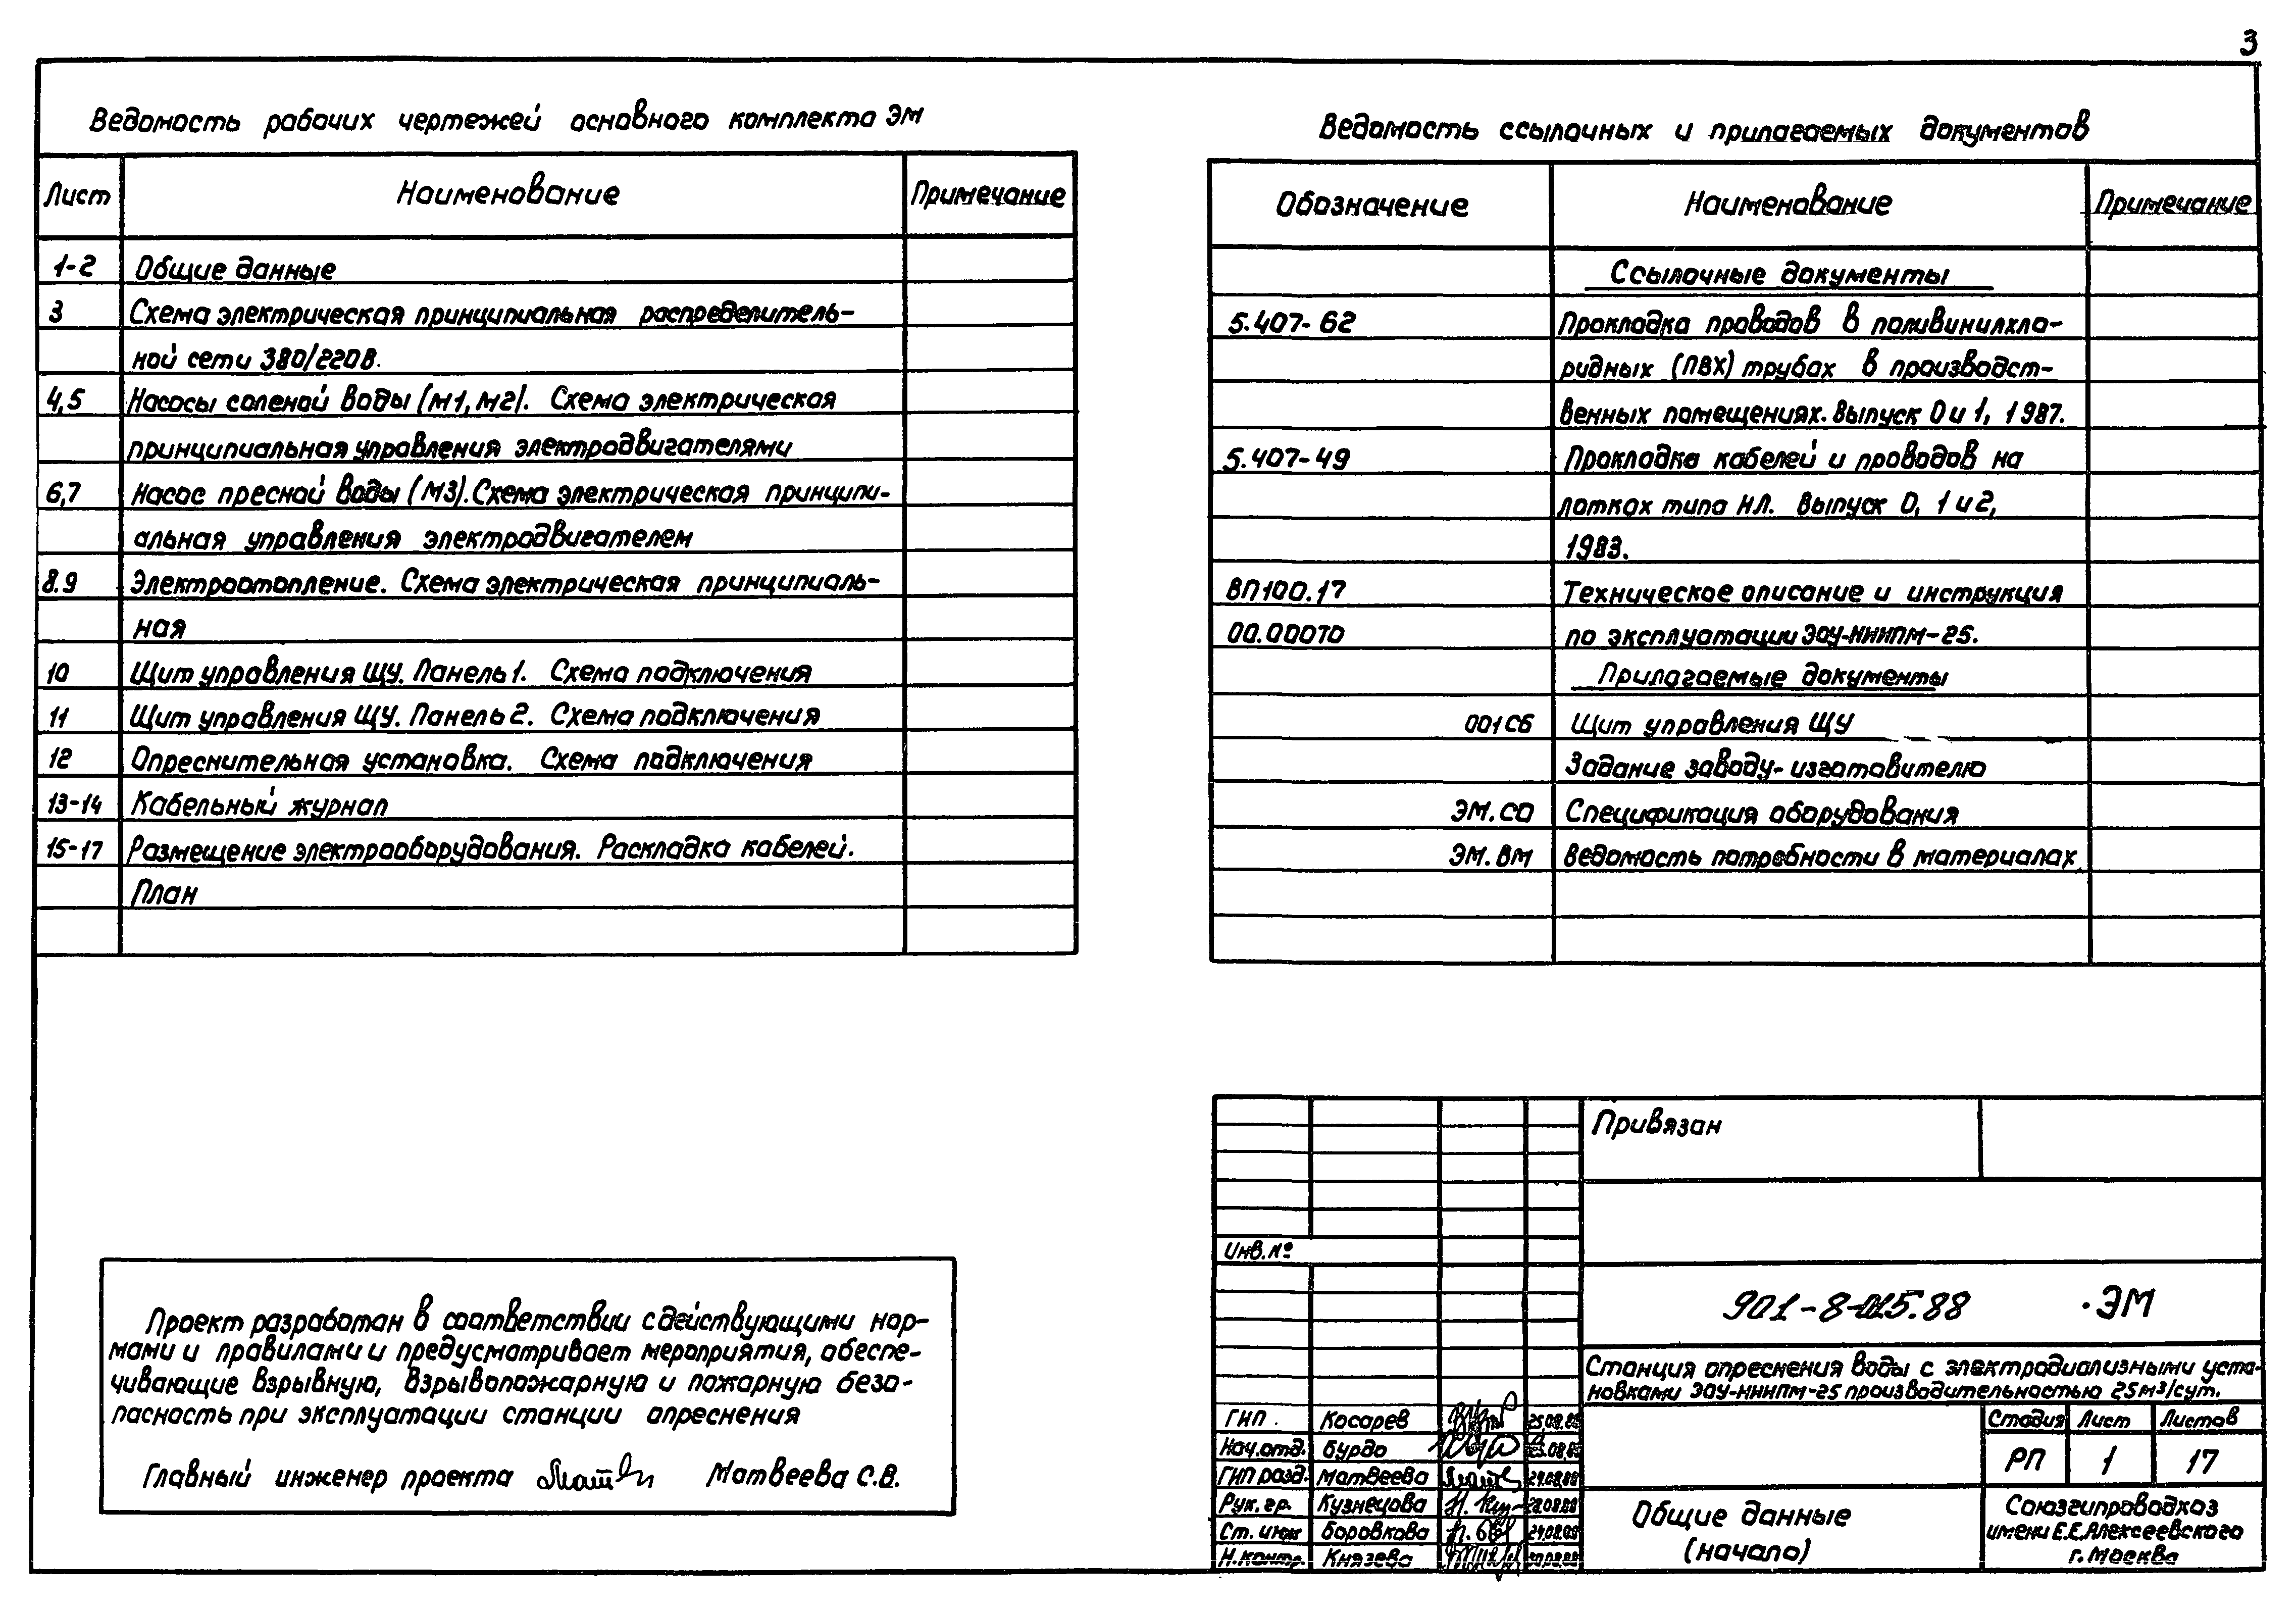 3
Ведомость рабочих чертежей основного комплекта ЭМ
Лист Наименование Примечание
1-2 Общие данные
3 Схема электрическая принципиальная распределитель-
ной сети 380/220В.
4,5 Насосы соленой воды (М1, М2). Схема электрическая
принципиальная управления электродвигателями
6,7 Насос пресной воды (М3). Схема электрическая принципи-
альная управления электродвигателем
8.9 Электроотопление. Схема электрическая принципиаль-
ная
10 Щит управления ЩУ. Панель 1. Схема подключения
11 Щит управления ЩУ. Панель 2. Схема подключения
12 Опреснительная установка. Схема подключения
13-14 Кабельный журнал
15-17 Размещение электрооборудования. Раскладка кабелей.
План
Ведомость ссылочных и прилагаемых документов
Обозначение Наименование Примечание
Ссылочные документы
5.407-62 Прокладка проводов в поливинилхло-
ридных (ПВХ) трубах в производст-
венных помещениях. Выпуск 0 и 1, 1987.
5.407-49 Прокладка кабелей и проводов на
лотках типа НЛ. Выпуск 0, 1 и 2,
1983.
ВП100.17 Техническое описание и инструкция
00.000ТО по эксплуатации ЭОУ-НИИПМ-25.
Прилагаемые документы
001СБ Щит управления ЩУ
Задание заводу-изготовителю
ЭМ.СО Спецификация оборудования
ЭМ.ВМ Ведомость потребности в материалах
Проект разработан в соответствии с действующими нор-
мами и правилами и предусматривает мероприятия, обеспе-
чивающие взрывную, взрывопожарную и пожарную безо-
пасность при эксплуатации станции опреснения
Главный инженер проекта Матвеева С.В.
Привязан
Инв.№
901-8-015.88 ·ЭМ
Станция опреснения воды с электродиализными уста-
новками ЭОУ-НИИПМ-25 производительностью 25м³/сут.
ГИП. Косарев 25.08.88
Нач.отд. Бурдо
ГИП разд. Матвеева 24.08.88
Рук. гр. Кузнецова
Ст. инж Боровкова 24.08.88
Н.контр. Князева
Стадия Лист Листов
РП 1 17
Общие данные
(начало)
Союзгипроводхоз
имени Е.Е.Алексеевского
г. Москва